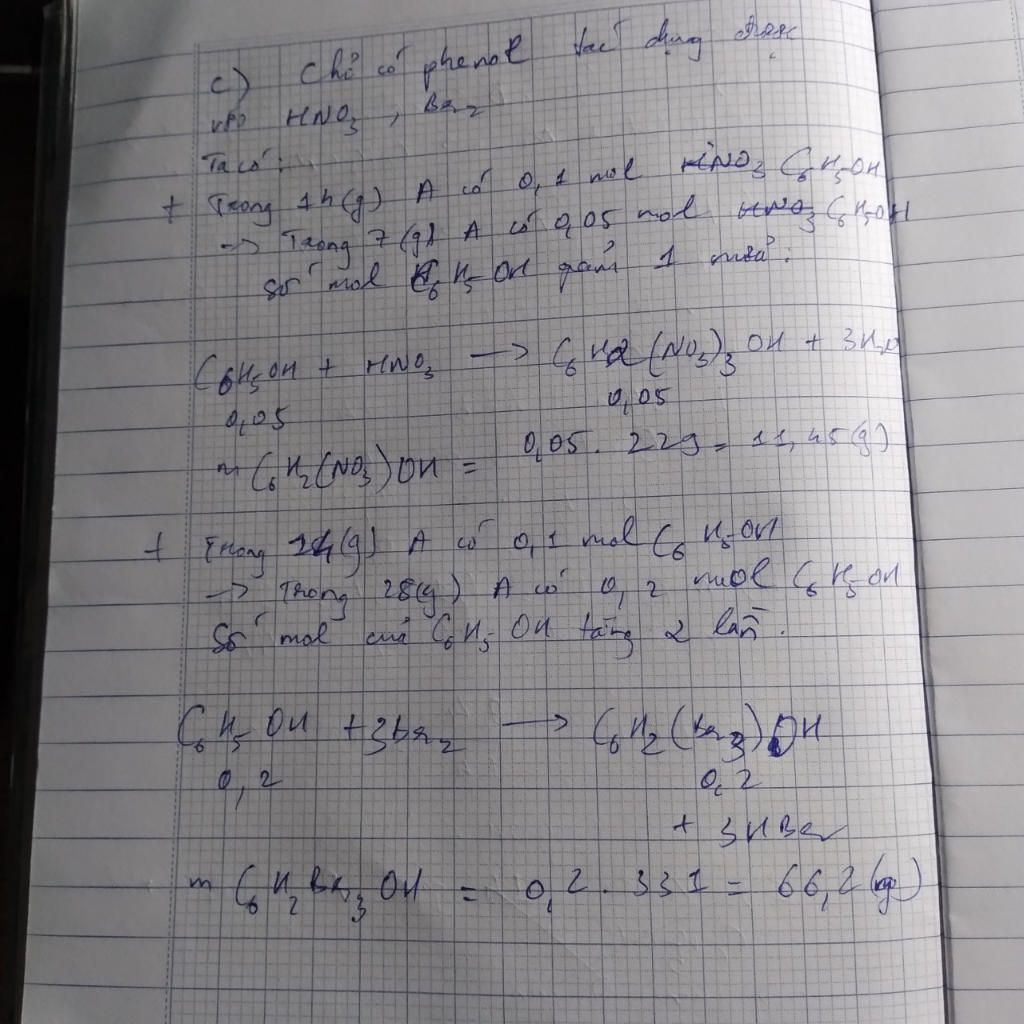 c) Chỉ có phenol tác dụng được
với HNO₃, Br₂
Ta có:
+ Trong 14(g) A có 0,1 mol HNO₃ C₆H₅OH
→ Trong 7(g) A có 0,05 mol HNO₃ C₆H₅OH
Số mol C₆H₅OH giảm 1 nửa:
C₆H₅OH + HNO₃ → C₆H₂(NO₃)₃OH + 3H₂O
0,05 0,05
m C₆H₂(NO₃)OH = 0,05 . 229 = 11,45(g)
+ Trong 14(g) A có 0,1 mol C₆H₅OH
→ Trong 28(g) A có 0,2 mol C₆H₅OH
Số mol của C₆H₅OH tăng 2 lần.
C₆H₅OH + 3Br₂ → C₆H₂(Br₃)OH
0,2 0,2
+ 3HBr
m C₆H₂Br₃OH = 0,2 . 331 = 66,2